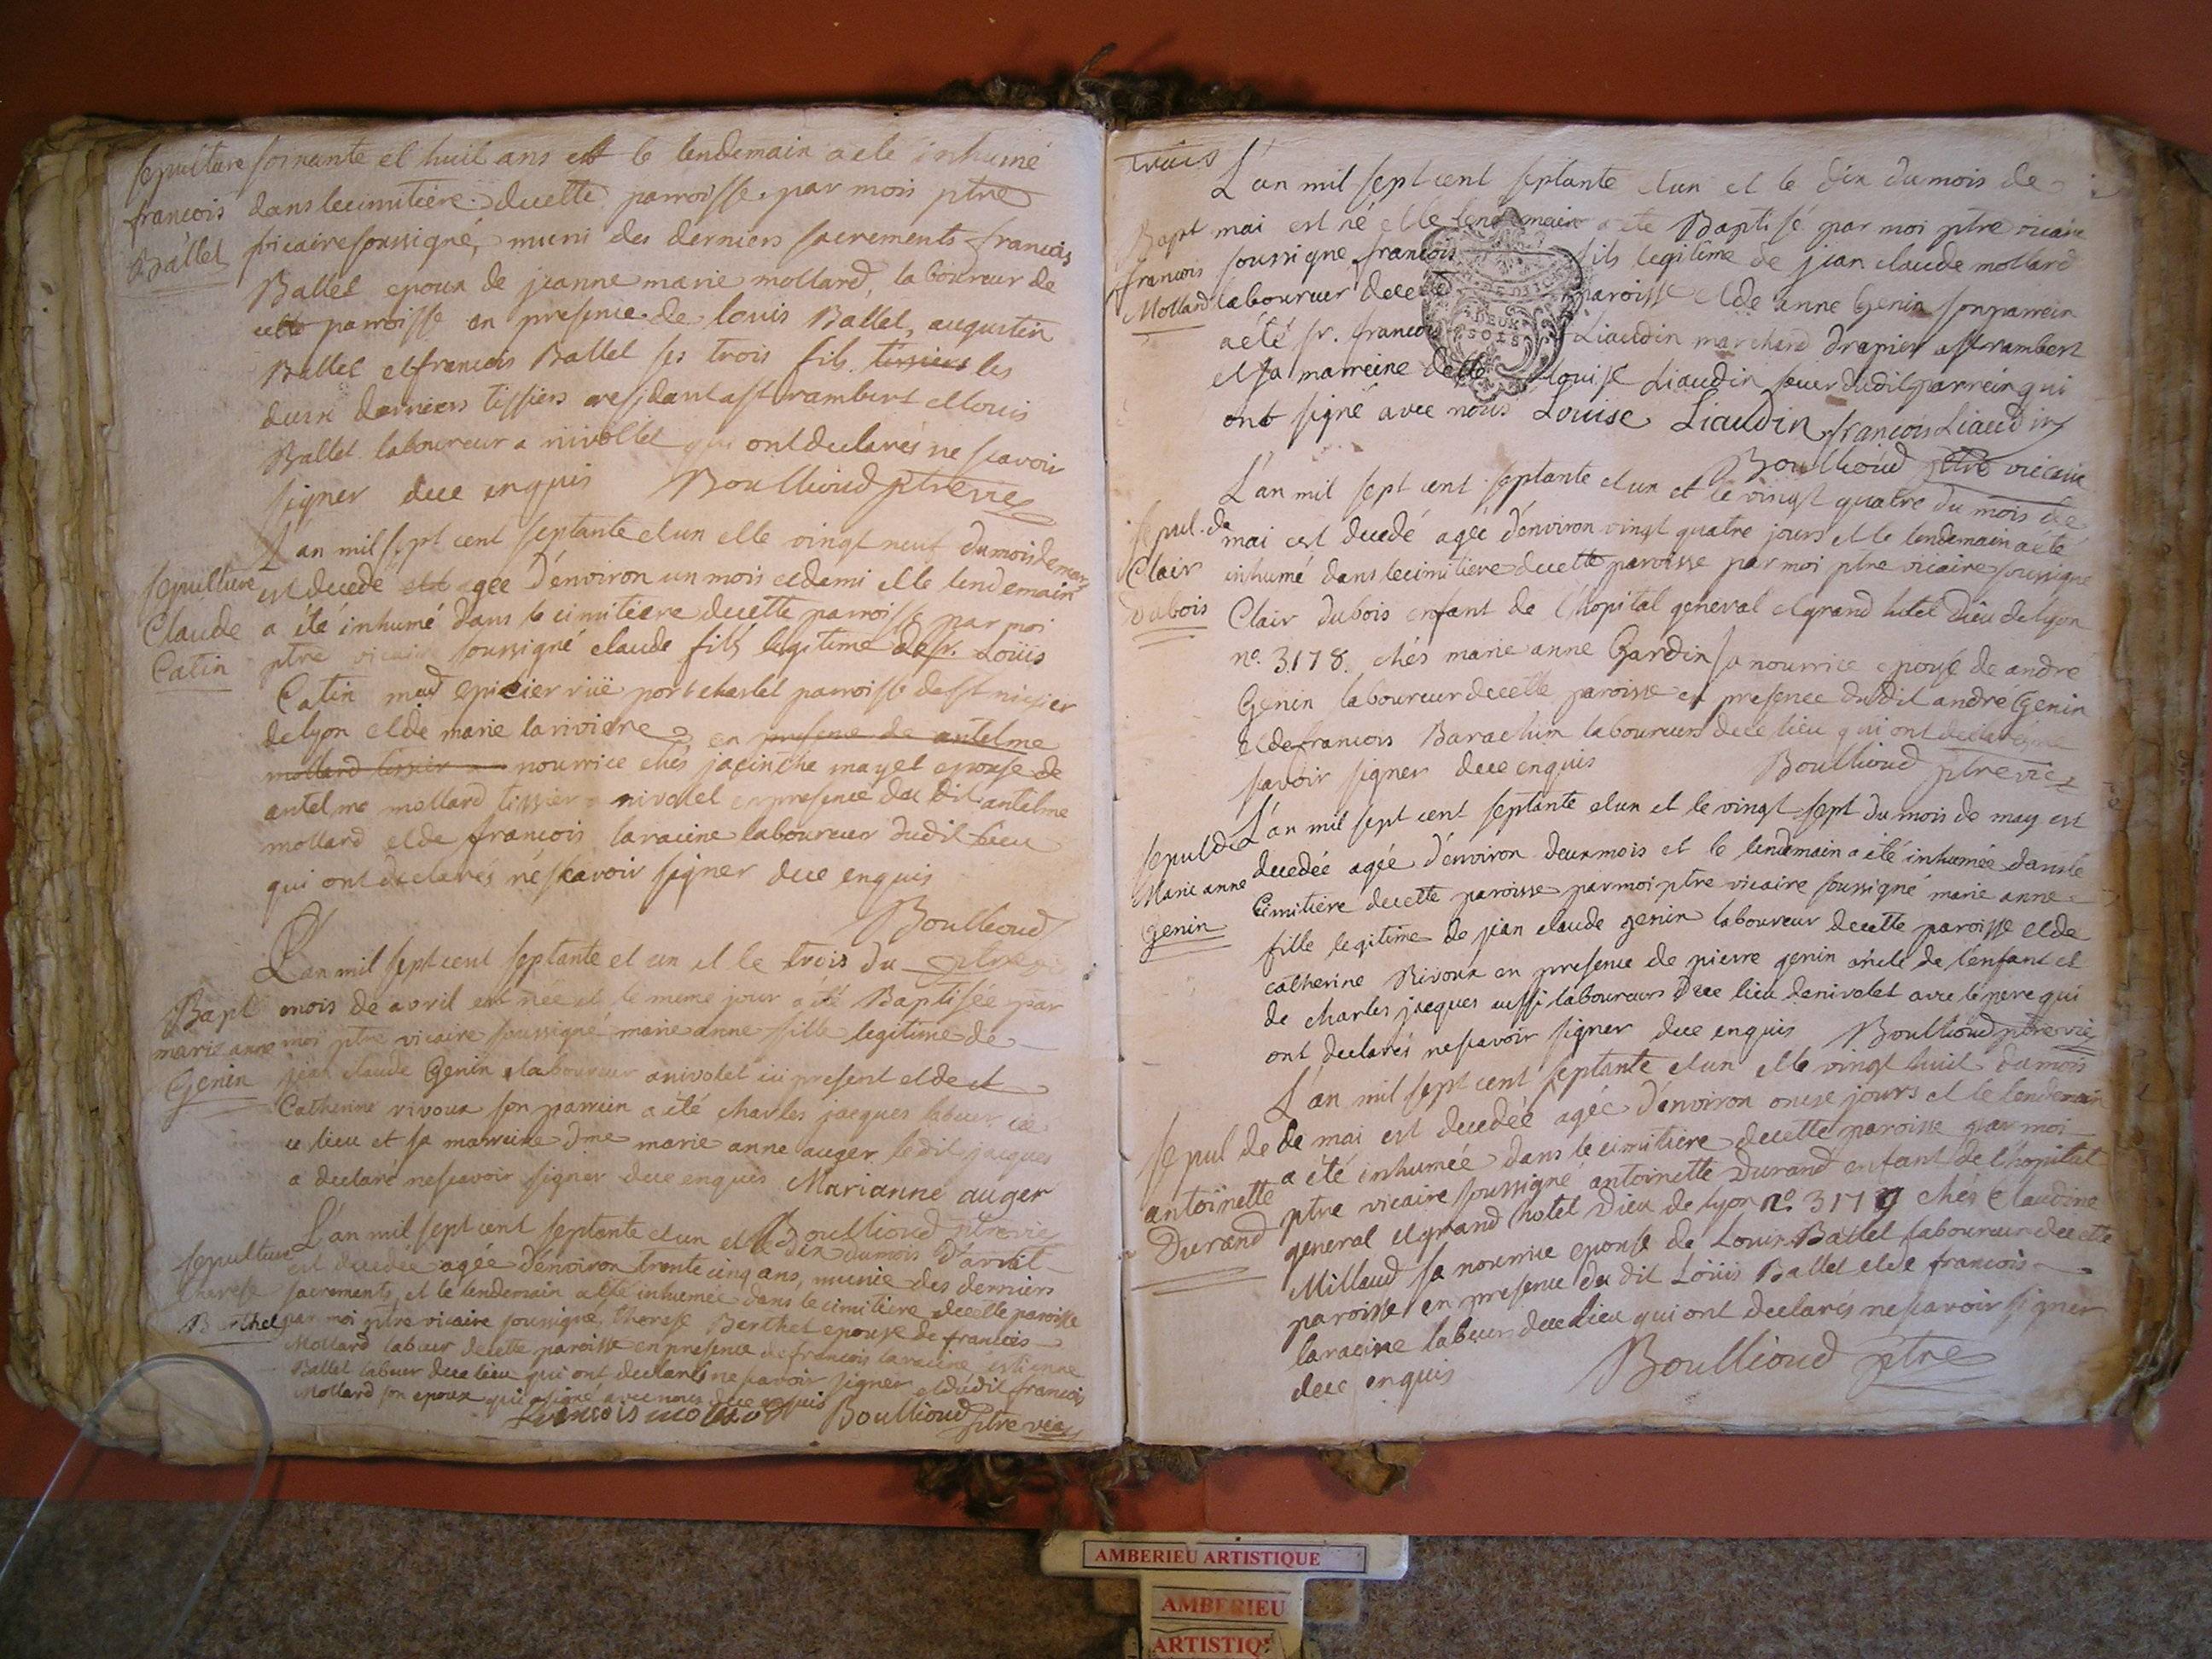 sepulture
francois
Ballet
soixante et huit ans est le lendemain a ete inhumé
dans le cimitiere de cette parroisse par mois ptre
vicaire soussigné, muni des derniers sacrements francois
Ballet epoux de jeanne marie mollard, laboureur de
cette parroisse en presence de louis Ballet, augustin
Ballet et francois Ballet ses trois fils tissiers les
deux derniers tissiers residant a st rambert et louis
Ballet laboureur a nivollet qui ont declarés ne scavoir
signer de ce enquis Boullioud ptre vic
sepulture
Claude
Catin
L'an mil sept cent septante et un et le vingt neuf du mois de mars
est decedé agée d'environ un mois et demi et le lendemain
a été inhumé dans le cimitiere de cette parroisse par moi
ptre vicaire soussigné claude fils legitime de sr. Loüis
Catin md epicier rüe port charlet parroisse de st nizier
de lyon et de marie la riviere en presence de antelme
mollard tissier nourrice chés jacinthe mayet epouse de
antelme mollard tissier a nivolet en presence du dit antelme
mollard et de francois laracine laboureur dudit lieu
qui ont declarés ne scavoir signer de ce enquis
Boullioud
ptre
Bapt
marie anne
Genin
L'an mil sept cent septante et un et le trois du
mois de avril est née et le meme jour a été Baptisée par
moi ptre vicaire soussigné marie anne fille legitime de
jean claude Genin laboureur a nivolet ici present et de et
Catherine rivoux son parrein a été charles jacques labour de
ce lieu et sa marreine dme marie anne auger le dit jacques
a declaré ne scavoir signer de ce enquis Marianne auger
Boullioud ptre vic
sepulture
therese
Berthet
L'an mil sept cent septante et un et le dix du mois d'avril
est decedée agée d'environ trente cinq ans, munie des derniers
sacrements, et le lendemain a été inhumée dans le cimitiere de cette paroisse
par moi ptre vicaire soussigné, therese Berthet epouse de francois
Mollard labour de cette paroisse en presence de francois laracine estienne
Ballet labour de ce lieu qui ont declarés ne scavoir signer et du dit francois
Mollard son epoux qui a signé avec nous de ce enquis
francois mollard Boullioud ptre vic
trois
Bapt
francois
Mollard
L'an mil sept cent septante et un et le dix du mois de
mai est né et le lendemain a ete Baptisé par moi ptre vicaire
soussigne francois fils legitime de jean claude mollard
laboureur de cette paroisse et de anne Genin son parrein
a été sr. francois Liaudin marchand drapier a st rambert
et sa marreine delle Louise Liaudin soeur dudit parrein qui
DEUX
SOLS
ont signé avec nous Louise Liaudin francois Liaudin
Boullioud ptre vicaire
sepul. de
Clair
Dubois
L'an mil sept cent septante et un et le vingt quatre du mois de
mai est decedé agée d'environ vingt quatre jours et le lendemain a été
inhumé dans le cimitiere de cette paroisse par moi ptre vicaire soussigné
Clair Dubois enfant de l'hopital general et grand hotel Dieu de lyon
no. 3178. chés marie anne Gardin sa nourrice epouse de andré
Genin laboureur de cette paroisse en presence du dit andre Genin
et de francois Barachin laboureurs de ce lieu qui ont declarés ne
scavoir signer de ce enquis Boullioud ptre vic
sepul de
Marie anne
Genin
L'an mil sept cent septante et un et le vingt sept du mois de may est
decedée agée d'environ deux mois et le lendemain a été inhumée dans le
Cimitiere de cette paroisse par moi ptre vicaire soussigné marie anne
fille legitime de jean claude genin laboureur de cette paroisse et de
catherine Rivoux en presence de pierre genin oncle de l'enfant et
de charles jacques aussi laboureurs de ce lieu de nivolet avec le pere qui
ont declarés ne scavoir signer de ce enquis Boullioud ptre vic
sepul de
antoinette
Durand
L'an mil sept cent septante et un et le vingt huit du mois
de mai est decedée agée d'environ onze jours et le lendemain
a été inhumée dans le cimitiere de cette paroisse par moi
ptre vicaire soussigné antoinette Durand enfant de l'hopital
general et grand hotel Dieu de lyon no. 3179 chés Claudine
Millaud sa nourrice epouse de Louis Ballet laboureur de cette
paroisse en presence du dit Loüis Ballet et de francois
laracine labour de ce lieu qui ont declarés ne scavoir signer
de ce enquis Boullioud ptre
AMBERIEU ARTISTIQUE
AMBERIEU
ARTISTIQ